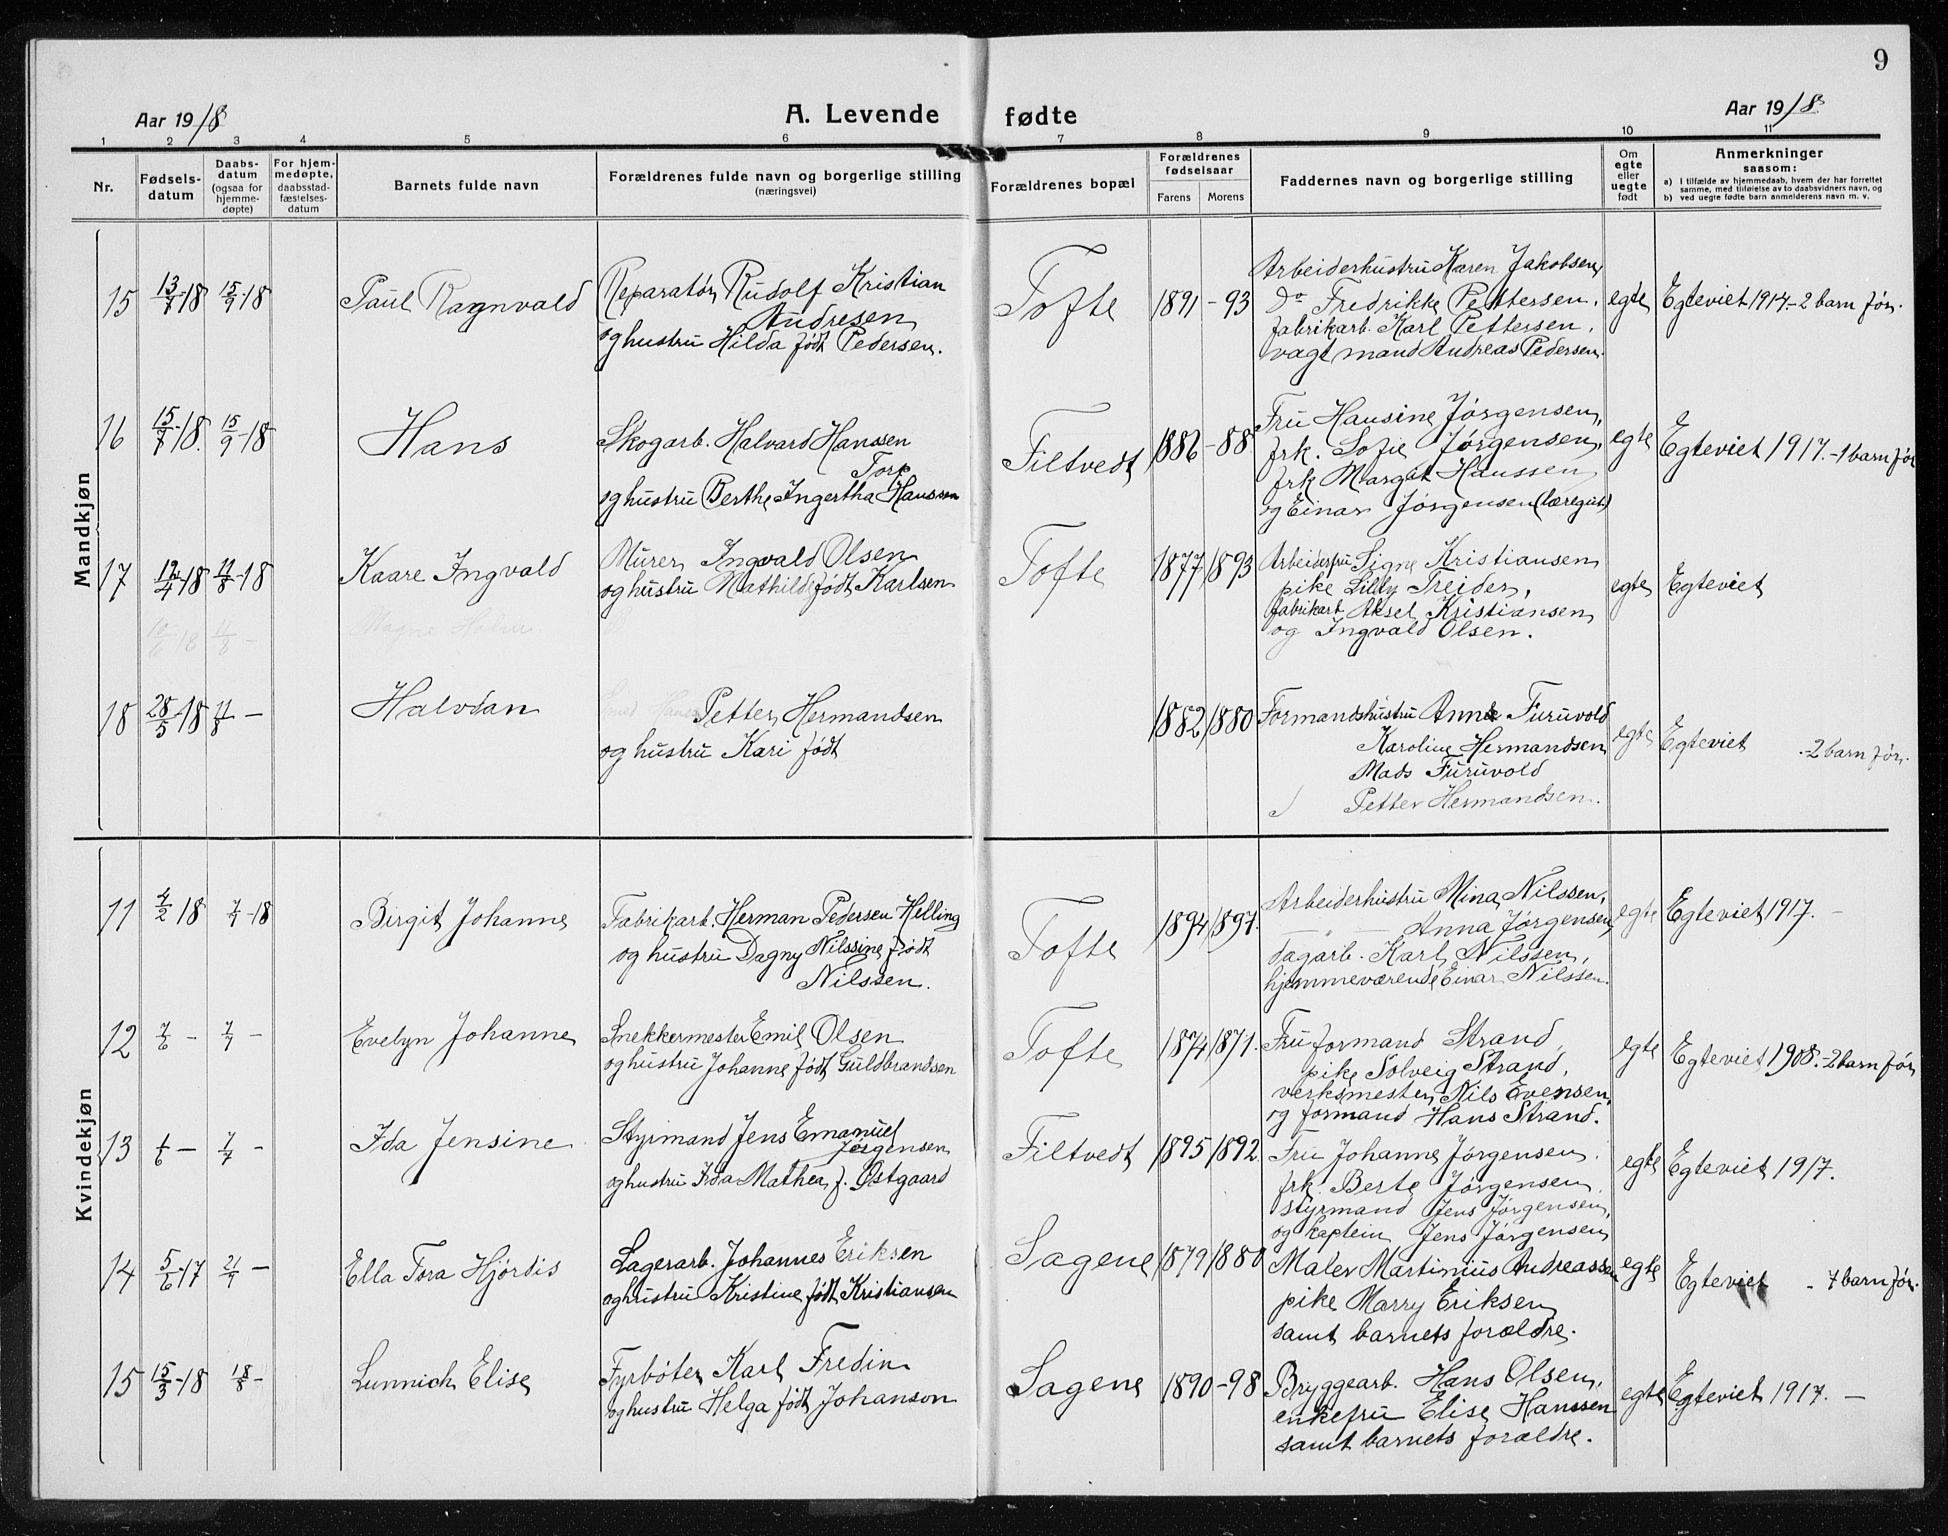 9
Aar 1918
A. Levende fødte
Aar 1918
1 2 3 4 5 6 7 8 9 10 11
Nr.
Fødsels-
datum
Daabs-
datum
(ogsaa for
hjemme-
døpte)
For hjem-
medøpte,
daabsstad-
fæstelses-
datum
Barnets fulde navn
Forældrenes fulde navn og borgerlige stilling
(næringsvei)
Forældrenes bopæl
Forældrenes
fødselsaar
Farens Morens
Faddernes navn og borgerlige stilling
Om
egte
eller
uegte
født
Anmerkninger
saasom:
a) I tilfælde av hjemmedaab, hvem der har forrettet
samme, med tilføielse av to daabsvidners navn, og
b) ved uegte fødte barn anmelderens navn m. v.
Mandkjøn
15 13/7-18 15/9-18
Paul Ragnvald
Reparatør Rudolf Kristian
Andresen
og hustru Hilda født Pedersen.
Tofte
1891 -93
Arbeiderhustru Karen Jakobsen,
Do Fredrikke Pettersen,
fabrikarb. Karl Pettersen,
vagtmand Andreas Pedersen.
egte
Egteviet 1914.-2 barn før.
16 15/7-18. 15/9-18
Hans
Skogarb. Halvard Hanssen
Torp
og hustru Berthe Ingertha Hanssen
Filtvedt
1886 -88
Fru Hansine Jørgensen,
frk. Sofie Jørgensen,
frk Margit Hanssen
og Einar Jørgensen (læregut)
egte
Egteviet 1917.-1 barn før
17 -18 11/8-18
Kaare Ingvald
Murer Ingvald Olsen
og hustru Mathilde født Karlsen
Tofte
1877 1893
Arbeiderfru Signe Kristiansen
pike Lilly Treider,
fabrikarb Aksel Kristiansen
og Ingvald Olsen.
egte
Egteviet
18 11/8 -
Magne Holm
18 28/5-18 11/8 -
Halvdan
Petter Hermandsen
og hustru Kari født
1882 1880
Formandshustru Anna Furuvold
Karoline Hermandsen
Mads Furuvold
Petter Hermandsen.
egte
Egteviet .-2 barn før.
Kvindekjøn
11 4/2 18 7/7-18
Birgit Johanne
Fabrikarb. Herman Pedersen Helling
og hustru Dagny Nilssine født
Nilssen.
Tofte
1894 1897.
Arbeiderhustru Mina Nilssen,
— " — Anna Jørgensen
dagarb. Karl Nilssen,
hjemmeværende Einar Nilssen.
egte
Egteviet 1917. -
12 7/6 - 7/7 -
Evelyn Johanne
Snekkermester Emil Olsen
og hustru Johanne født Guldbrandsen
Tofte
1874 1871.
Fru formand Strand,
pike Solveig Strand,
verksmester Nils Evensen,
og formand Hans Strand.
egte
Egteviet 1908.-2 barn før
13 1/6 - 7/7 -
Ida Jensine
Styrmand Jens Emanuel
Jørgensen
og hustru Ida Mathea f. Østgaard
Filtvedt
1895 1892
Fru Johanne Jørgensen,
frk. Berte Jørgensen,
styrmand Jens Jørgensen,
og kaptein Jens Jørgensen
egte
Egteviet 1917.
14 5/6-17 -
Ella Tora Hjørdis
Lagerarb. Johannes Eriksen
og hustru Kristine født Kristiansen
Sagene
1879 1880
Maler Martinius Andreassen
pike Marry Eriksen
samt barnets forældre.
egte
Egteviet - 7 barn før.
15 15/3-18 18/8 -
Lunnich Elise
Fyrbøter Karl Fredin
og hustru Helga født Johanson
Sagene
1890 -98
Bryggearb. Hans Olsen,
enkefru Elise Hanssen
samt barnets forældre.
egte
Egteviet 1917. -